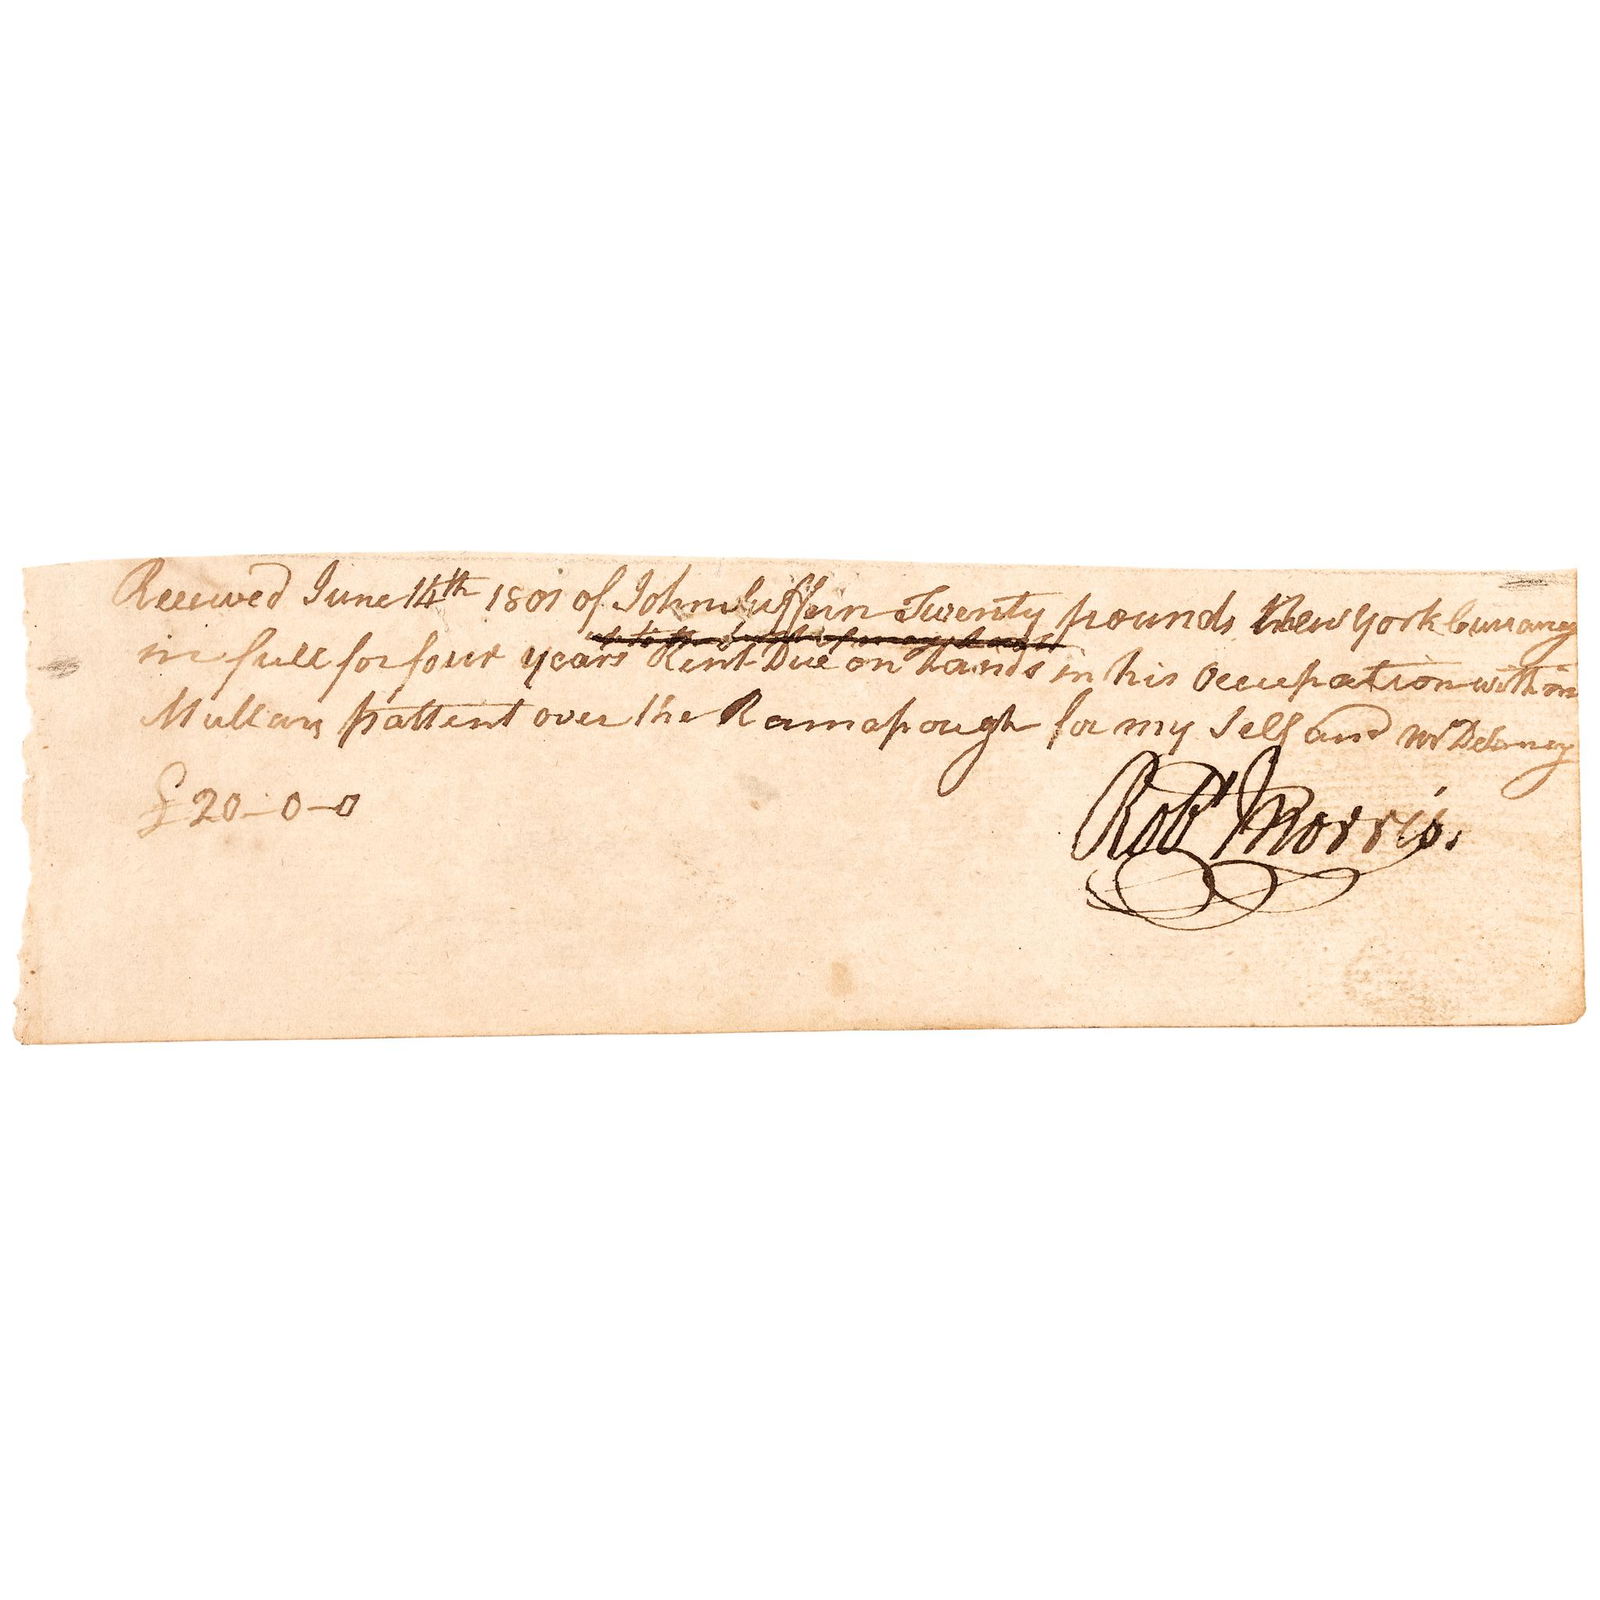 Received June 14th 1801 of John Suffern Twenty pounds New York Curraney
in full for four years Rent Due on Lands in his Occupation within
pattent over the Ramapough for my Self and Mr Delaney
£ 20-0-0
Robt Morris.